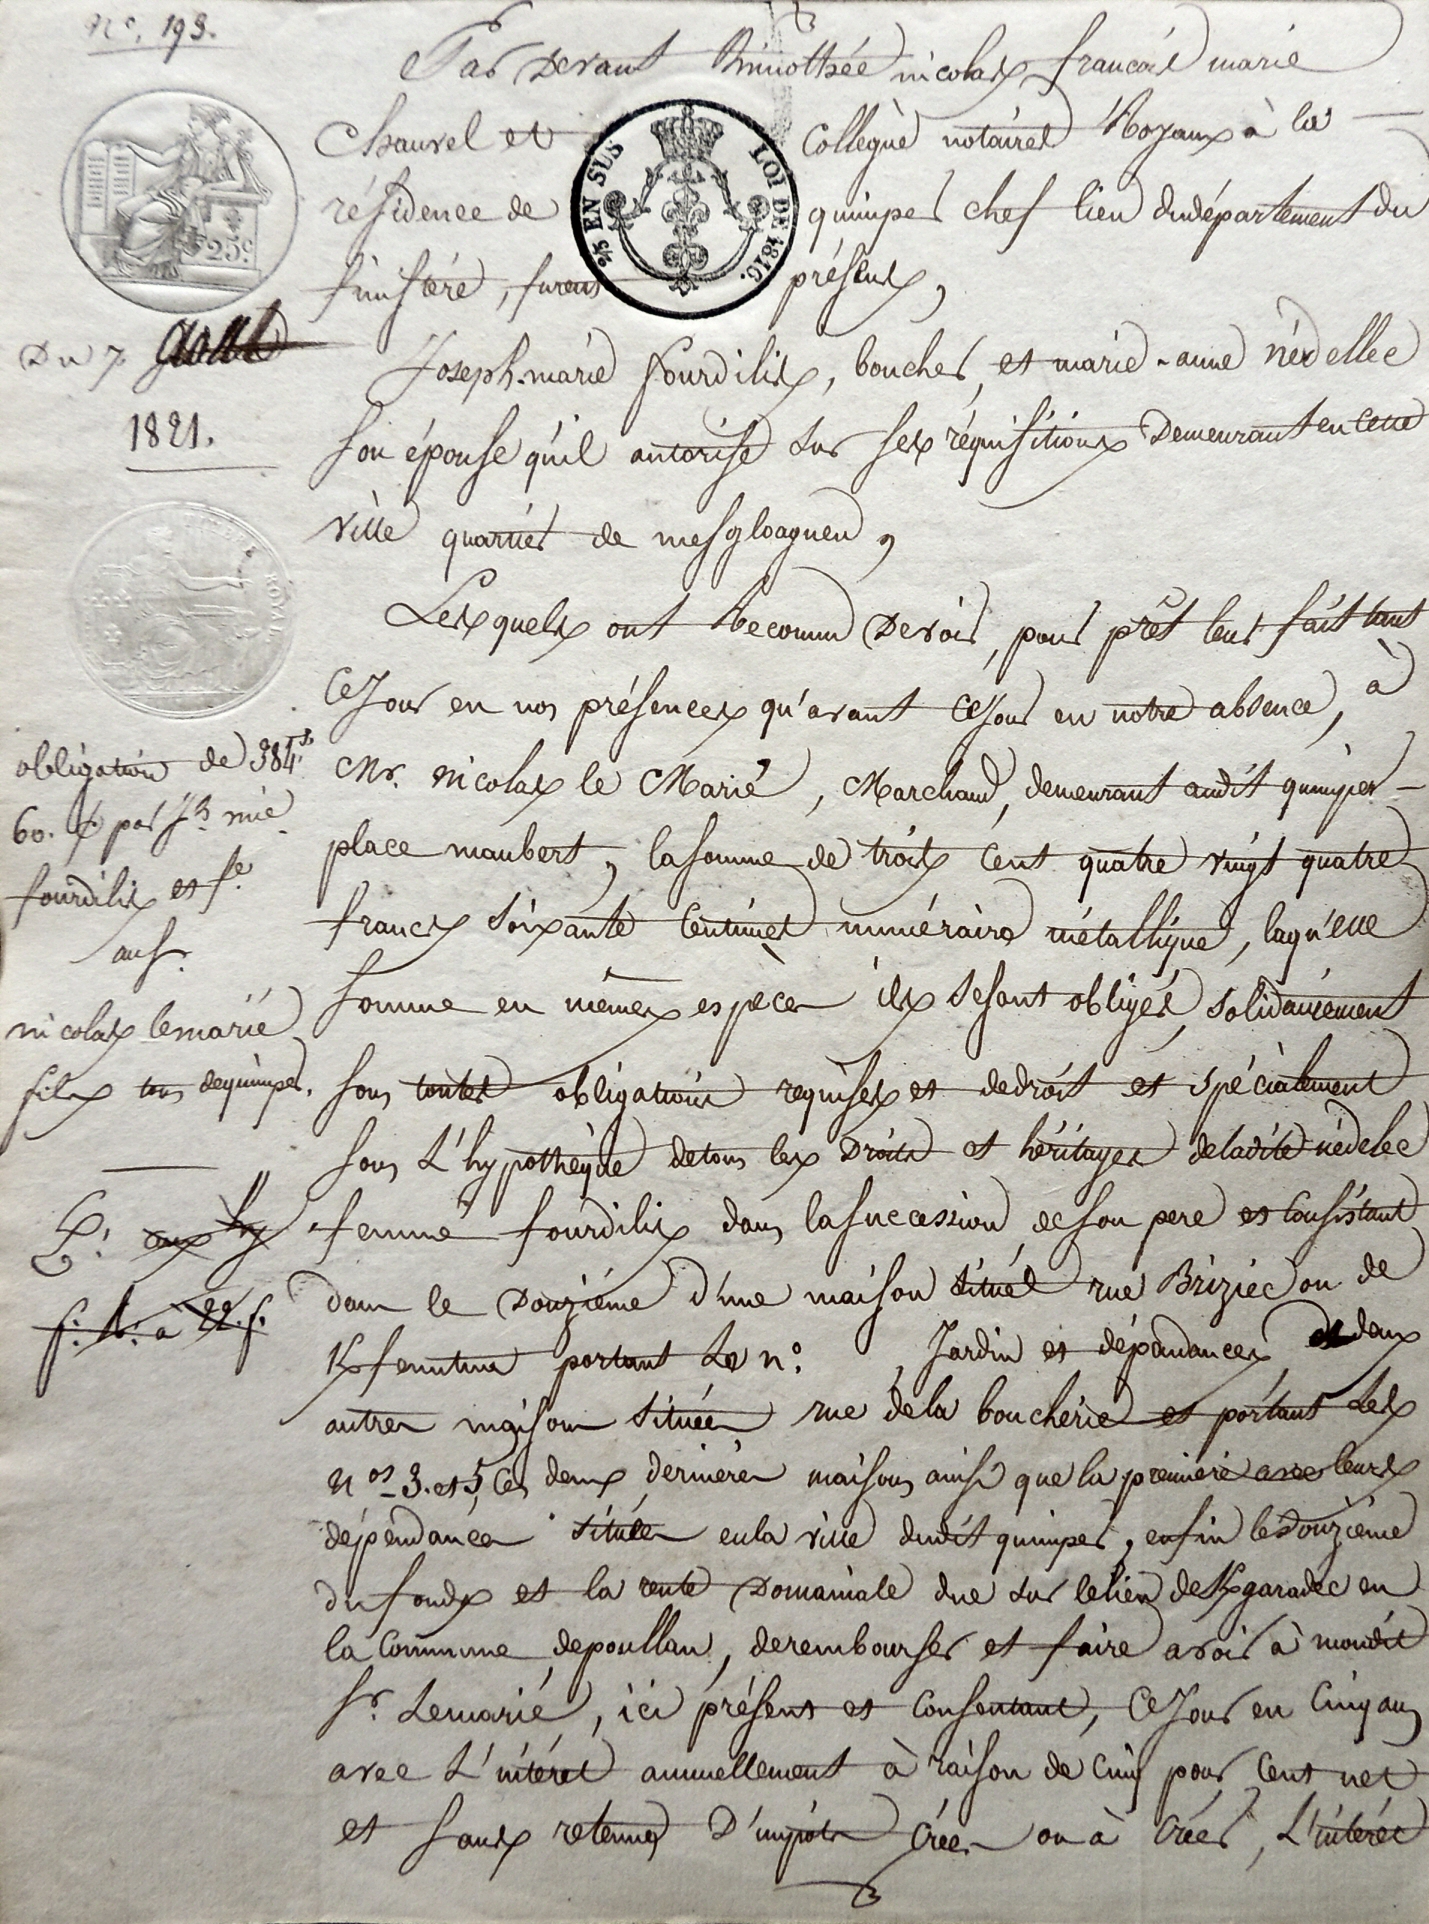 n.° 193.
Par Devant Thimothée nicolas françois marie
Chauvel et collègue notaires Royaux à la
résidence de quimper chef lieu dudépartement du
finistère, furent présens,
2/5 EN SUS LOI DE 1816.
25c.
Du 7. août
1821.
Joseph-marie fourdilis, boucher, et marie-anne nédellec
son épouse qu'il autorise sur ses réquisitions Demeurant en cette
ville quartier de mesgloaguen,
Lesquels ont Reconnu Devoir, pour prêt leur fait tant
ce Jour en nos présences qu'avant ce Jour en notre absence, à
Mr. nicolas le Marié, Marchand, demeurant audit quimper
place maubert, la somme de trois cent quatre vingt quatre
francs soixante centimes numéraire métallique, laquelle
somme en mêmes espèces ils se sont obligés, solidairement
sous toutes obligations requises et de droit et spécialement
sous L'hypothèque de tous les Droits et héritages deladite nédelec
femme fourdilis dans la succession de son pere et consistant
dans le Douzième d'une maison située rue Briziec ou de
Kfeunteun portant Le n.° , Jardin et dépendances et deux
autres maisons situées rue de la boucherie et portant Les
nos 3. et 5, ces deux dernières maisons ainsi que la première avec leurs
dépendances situées en la ville dudit quimper, enfin le Douzième
du fonds et la rente Domaniale due sur le lieu de Kgaradec en
la commune de poullan, de rembourser et faire avoir à mondit
Sr. Lemarié, ici présent et consentant, ce Jour en cinq ans
avec L'intérêt annuellement à raison de cinq pour cent net
et sans retenue D'impôts créés ou à créer, L'intérêt
obligation de 384f
60. c. par Jh mie
fourdilis et fe
au sr.
nicolas lemarié
fils tous de quimper.
ROYAL